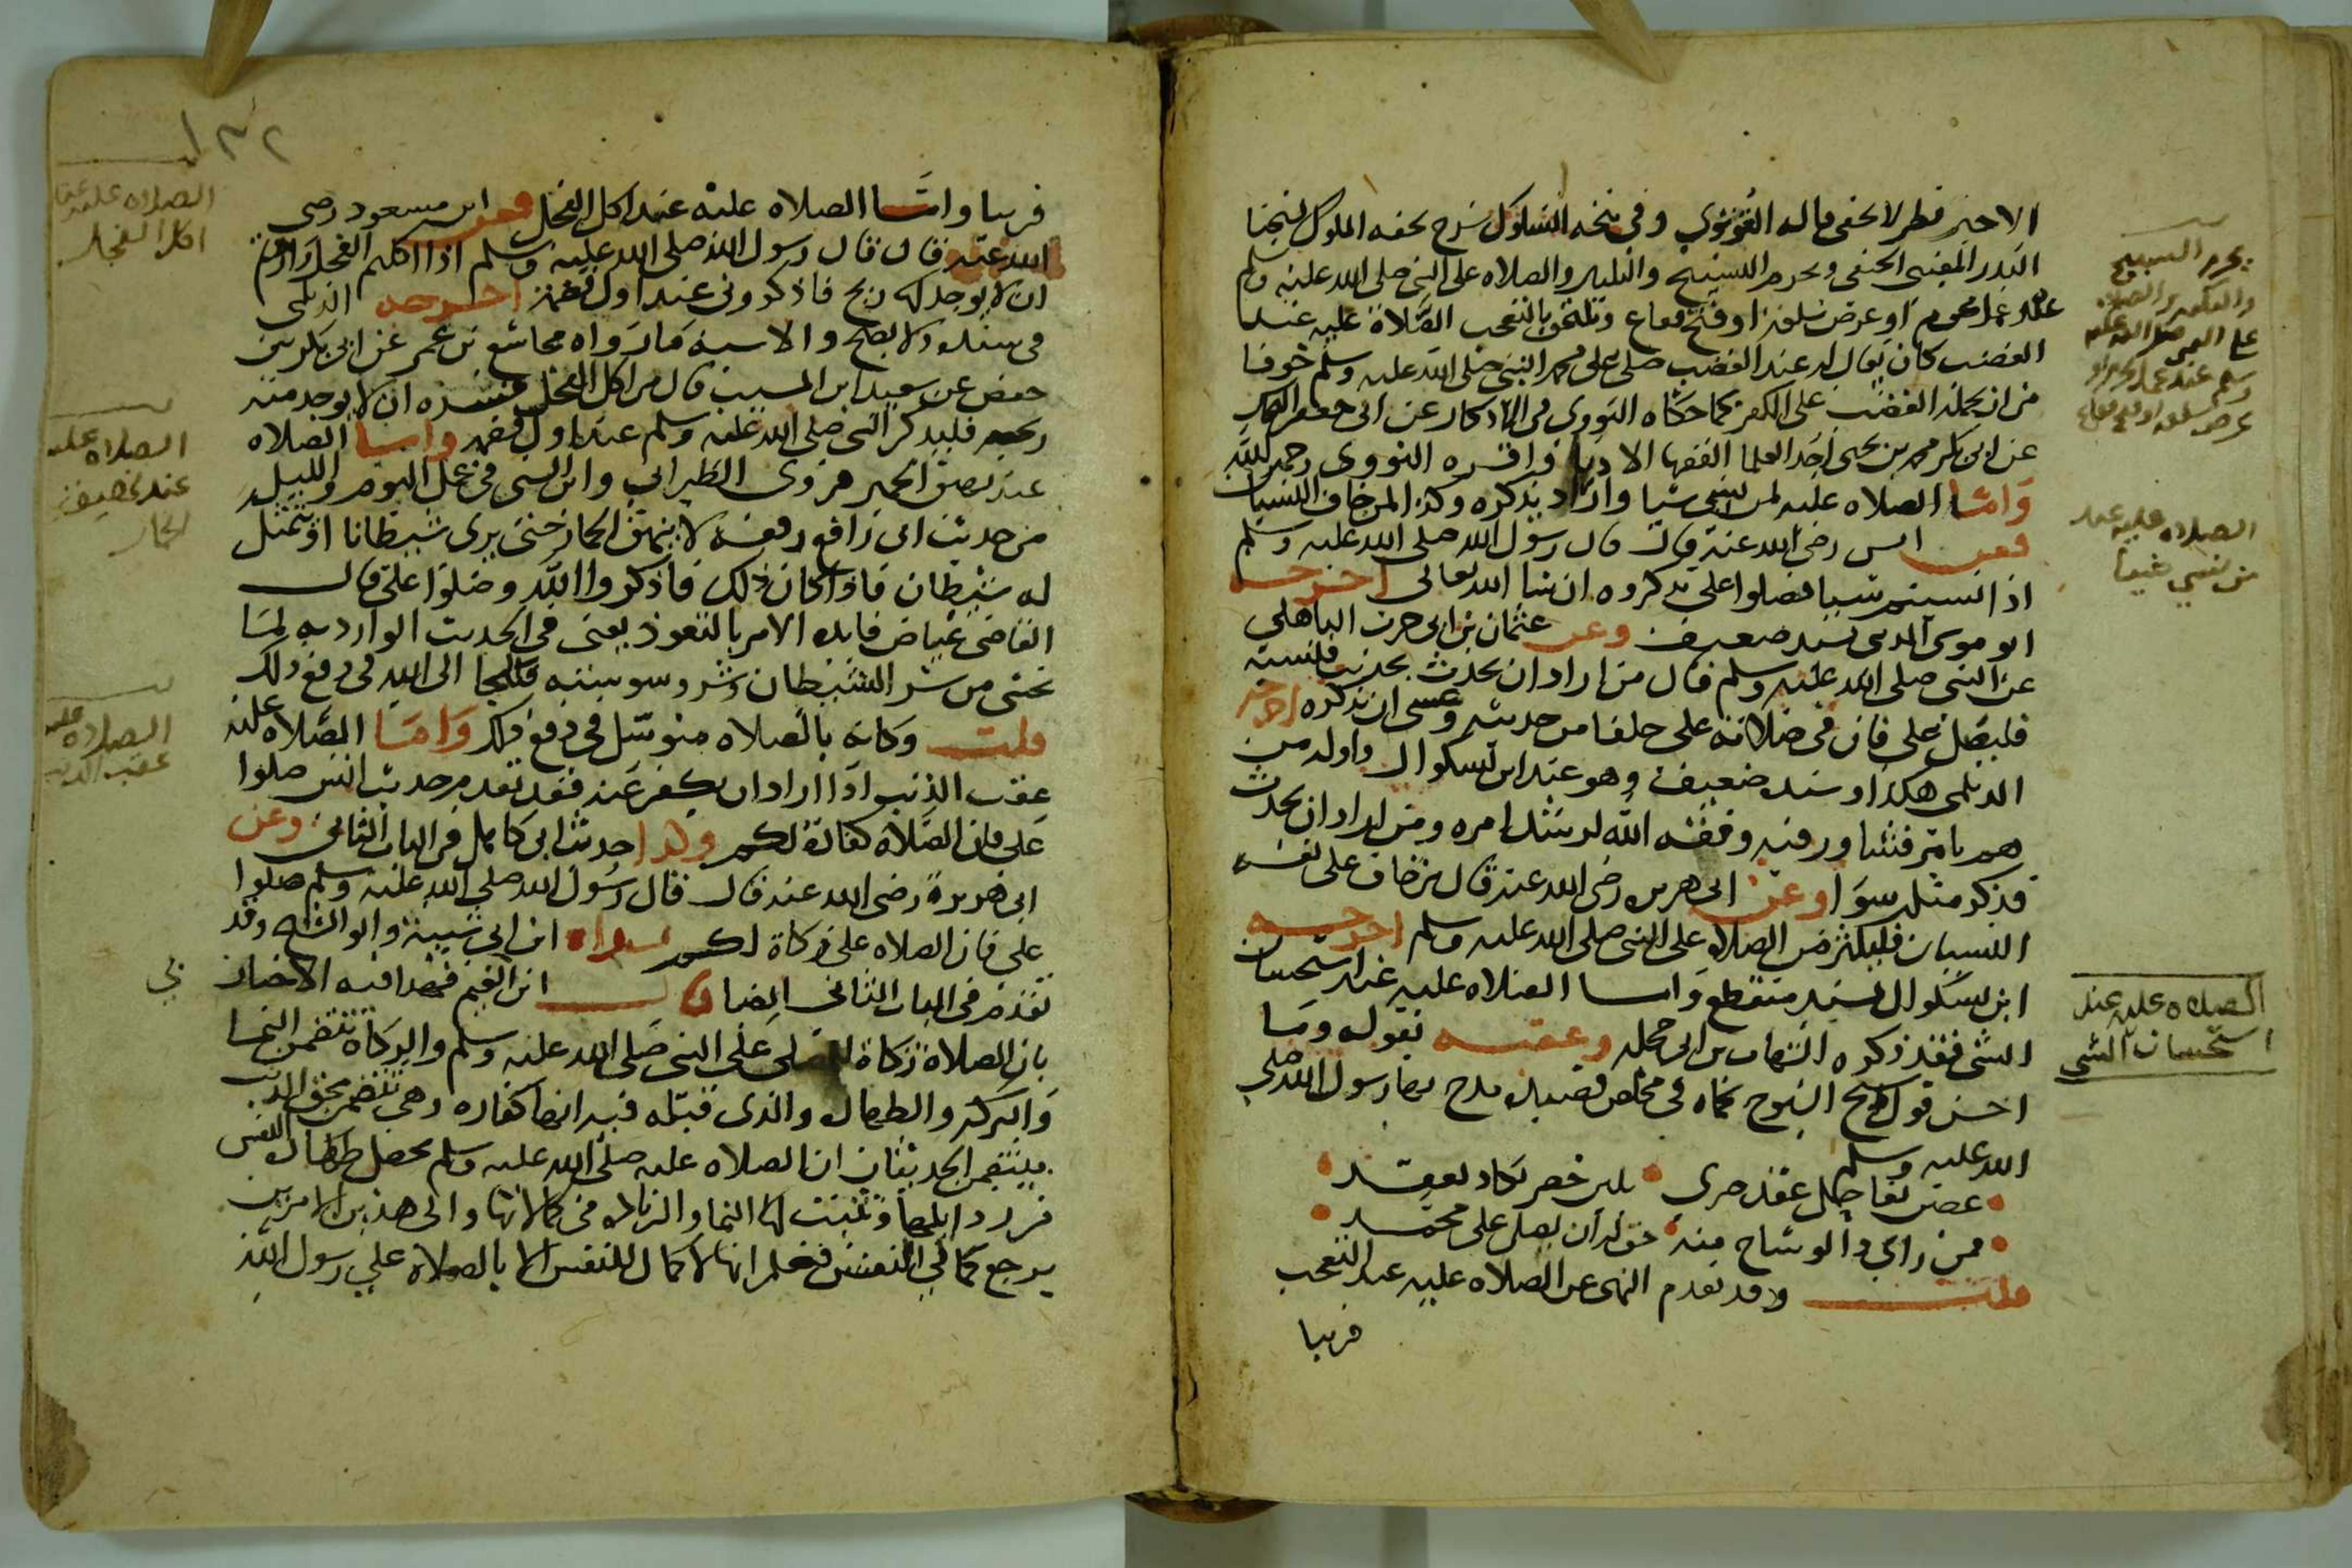 الاخير فطر لا يخفى قاله القونوي وفي منحه السلوك شرح تحفه الملوك لشيخنا
البدر العيني الحنفي ويحرم التسبيح والتكبير والصلاه على النبي صلى الله عليه وسلم
عند عمل محرم او عرض سلعة او فتح متاع ويلتحق بالتعجب الصلاة عليه عند
الغضب كان يقال له عند الغضب صل على محمد النبي صلى الله عليه وسلم خوفا
من ان يحمله الغضب على الكفر كما حكاه النووي في الاذكار عن ابي جعفر النحاس
عن ابي بكر محمد بن يحيى احد العلما الفقها الادبا واقره النووي رحمه الله
واما الصلاه عليه لمن نسي شيا واراد يذكره وكذا لمن خاف النسيان
فعن انس رضي الله عنه قال قال رسول الله صلى الله عليه وسلم
اذا نسيتم شيا فصلوا علي تذكروه ان شا الله تعالى اخرجه
ابو موسى المديني بسند ضعيف وعن عثمان بن ابي حرب الباهلي
عن النبي صلى الله عليه وسلم قال من اراد ان يحدث بحديث فنسيه
فليصل علي فان في صلاته علي خلفا من حديثه وعسى ان يذكره اخرجه
الديلمي هكذا وسنده ضعيف وهو عند ابن بشكوال واوله من
هم بامر فشاور فيه وفقه الله لرشد امره ومن اراد ان يحدث
فذكر مثله سوا وعن ابي هريره رضي الله عنه قال من خاف على نفسه
النسيان فليكثر من الصلاه على النبي صلى الله عليه وسلم اخرجه
ابن بشكوال بسند منقطع واما الصلاه عليه عند استحسان
الشي فقد ذكره الشهاب بن ابي حجله وعقبه بقوله وما
احسن قول شيخ الشيوخ بحماه في مخلص قصيدة مدح بها رسول الله صلى
الله عليه وسلم
غصن نقا حل عقد صبري • بلين خصر يكاد يعقد
فمن راى ذا الوشاح منه • حق له ان يصل على محمد
قلت وقد تقدم النهي عن الصلاه عليه عند التعجب
قريبا
يحرم التسبيح
والتكبير والصلاه
على النبي صلى الله عليه
وسلم عند عمل محرم او
عرض سلعه او فتح متاع
الصلاه عليه عند
من نسي شيئا
الصلاه عليه عند
استحسان الشي
١٣٢
قريبا واما الصلاه عليه عند اكل الفجل فعن ابن مسعود رضي
الله عنه قال قال رسول الله صلى الله عليه وسلم اذا اكلتم الفجل واردتم
ان لا يوجد له ريح فاذكروني عند اول قضمة اخرجه الديلمي
في مسنده ولا يصح والاشبه ما رواه مجاشع بن عمرو عن ابي بكر بن
حفص عن سعيد ابن المسيب قال من اكل الفجل فسره ان لا يوجد منه
ريحه فليذكر النبي صلى الله عليه وسلم عند اول قضمه واما الصلاه
عند نهيق الحمير فروى الطبراني وابن السني في عمل اليوم والليله
من حديث ابي رافع رفعه لا ينهق الحمار حتى يرى شيطانا او يتمثل
له شيطان فاذا كان ذلك فاذكروا الله وصلوا علي قال
القاضي عياض فايده الامر بالتعوذ يعني في الحديث الوارد به لما
يخشى من شر الشيطان وشر وسوسته فليلجا الى الله في دفع ذلك
قلت وكانه بالصلاه متوسل في دفع ذلك واما الصلاه عليه
عقب الذنب اذا اراد ان يكفر عنه فقد تقدم حديث انس صلوا
علي فان الصلاة كفارة لكم وكذا حديث ابي كاهل في الباب الثاني وعن
ابي هريرة رضي الله عنه قال قال رسول الله صلى الله عليه وسلم صلوا
علي فان الصلاه علي زكاة لكم رواه ابن ابي شيبة وابو الشيخ وقد
تقدم في الباب الثاني ايضا قال ابن القيم فهذا فيه الاخبار
بان الصلاة زكاة للمصلي على النبي صلى الله عليه وسلم والزكاة تتضمن النما
والبركه والطهاره والذي قبله فيه انها كفاره وهي تتضمن محق الذنب
فيتضمن الحديثان ان الصلاه عليه صلى الله عليه وسلم تحصل طهارة النفس
من رذايلها وتثبت لها النما والزيادة في كمالاتها والى هذين الامرين
يرجع كمال النفس فعلم انها لا كمال للنفس الا بالصلاة على رسول الله
الصلاه عليه عند
اكل الفجل
الصلاه عليه
عند نهيق
الحمار
الصلاه عليه
عقب الذنب